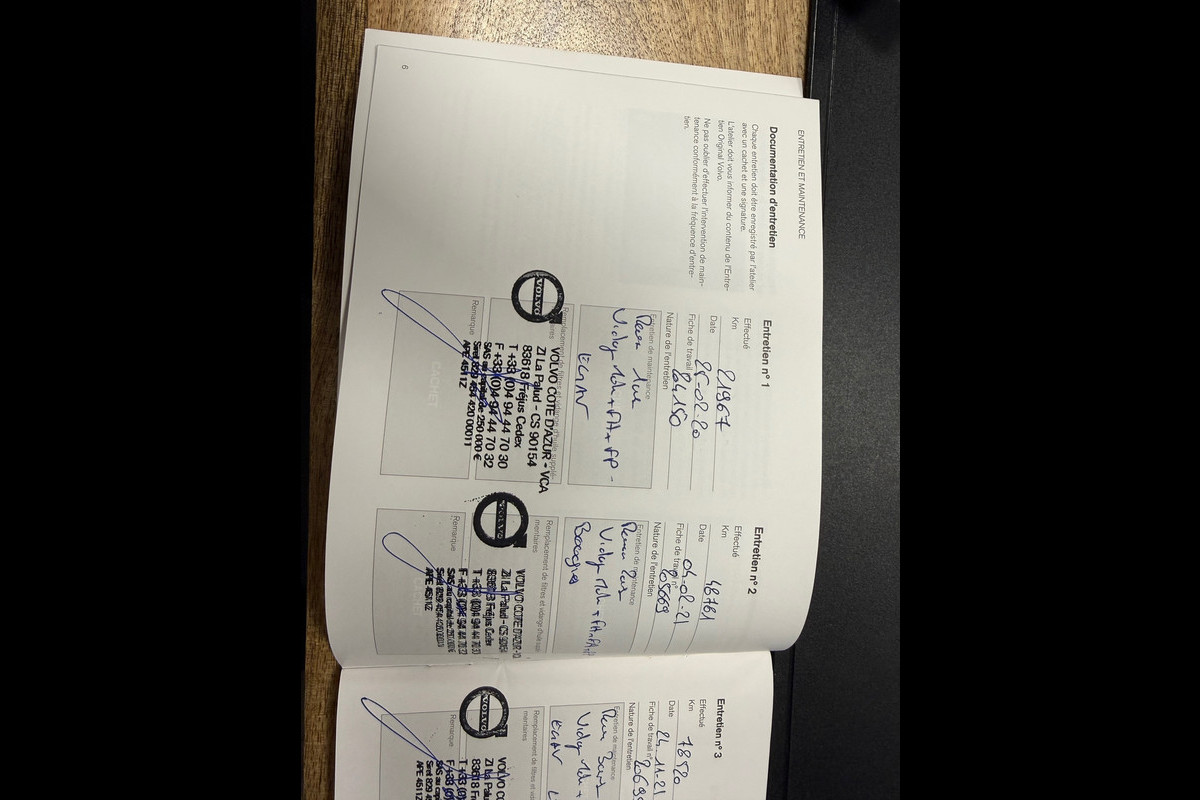 ENTRETIEN ET MAINTENANCE
Documentation d'entretien
Chaque entretien doit être enregistré par l'atelier
avec un cachet et une signature.
L'atelier doit vous informer du contenu de l'Entre-
tien Original Volvo.
Ne pas oublier d'effectuer l'intervention de main-
tenance conformément à la fréquence d'entre-
tien.
6
Entretien n° 1
Effectué
Km 21967
Date 25-02-20
Fiche de travail n° 04150
Nature de l'entretien
Entretien de maintenance
Remplacement de filtres et vidange d'huile supplé-
mentaires
Remarque
CACHET
VOLVO
VOLVO COTE D'AZUR - VCA
ZI La Palud - CS 90154
83618 Fréjus Cedex
T +33 (0)4 94 44 70 30
F +33 (0)4 94 44 70 32
SAS au capital de 250 000 €
Siret 829 454 420 00011
APE 4511Z
Entretien n° 2
Effectué
Km 48761
Date 04-02-21
Fiche de travail n° 05669
Nature de l'entretien
Entretien de maintenance
Remplacement de filtres et vidange d'huile supplé-
mentaires
Remarque
CACHET
VOLVO
VOLVO COTE D'AZUR
ZI La Palud - CS 90154
83618 Fréjus Cedex
T +33 (0)4 94 44 70 30
F +33 (0)4 94 44 70 32
SAS au capital de 250 000 €
Siret 829 454 420 00011
APE 4511Z
Entretien n° 3
Effectué
Km
Date 24-11-21
Fiche de travail n°
Nature de l'entretien
Entretien de maintenance
Remplacement de filtres et vidan
mentaires
Remarque
VOLVO
VOLVO CO
ZI La Palud
83618 Fr
T +33 (0)
F +33 (0)
SAS au capi
Siret 829 4
APE 4511Z